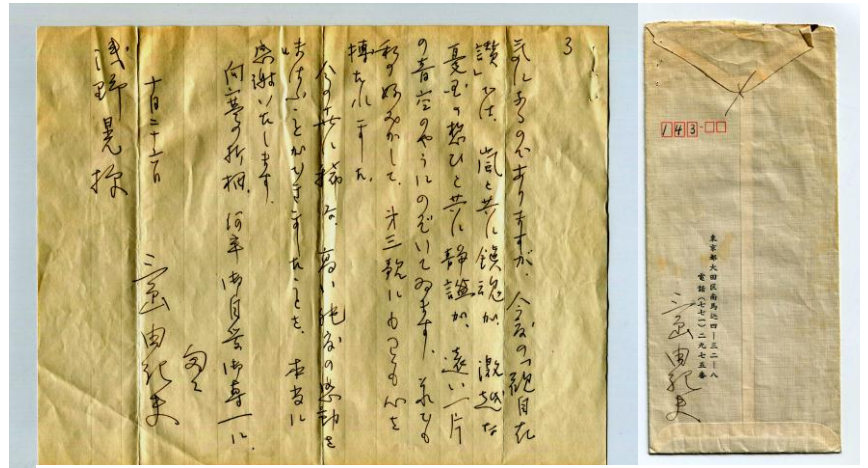 3
気のするのでありますが、今度の「観自在
讃」では、嵐と共に鎮魂が、激越な
憂国の想ひと共に静謐が、遠い一片
の青空のやうにのぞいてゐます。
私の好みからして、第三にもつとも心を
搏たれました。
今の世に稀な、高い純度の感動を
味はふことができましたことを、本当に
感謝いたします。
向寒の折柄、何卒御自愛御専一に、
匆々
十月二十六日
三島由紀夫
浅野晃様
143-
東京都大田区南馬込四ー三二ー八
電話(七七一)二九七五番
三島由紀夫